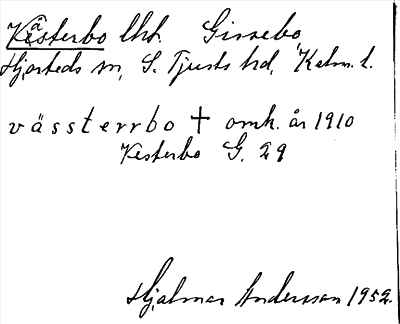 Västerbo lht. Gissebo,
Hjorteds sn, S. Tjusts hd, Kalm. l.
vässterrbo † omk. år 1910
Vesterbo G. 29
Hjalmar Andersson 1952.